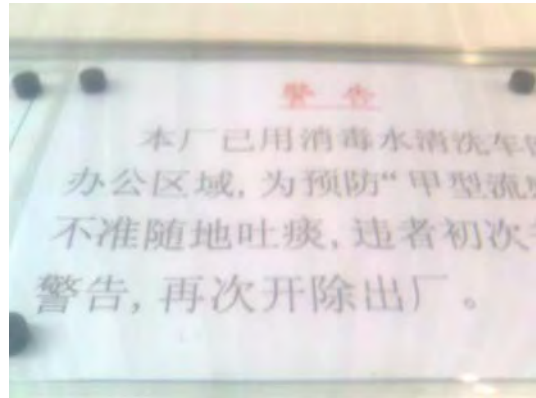 警告
本厂已用消毒水清洗车
办公区域,为预防“甲型流
不准随地吐痰,违者初次
警告,再次开除出厂。